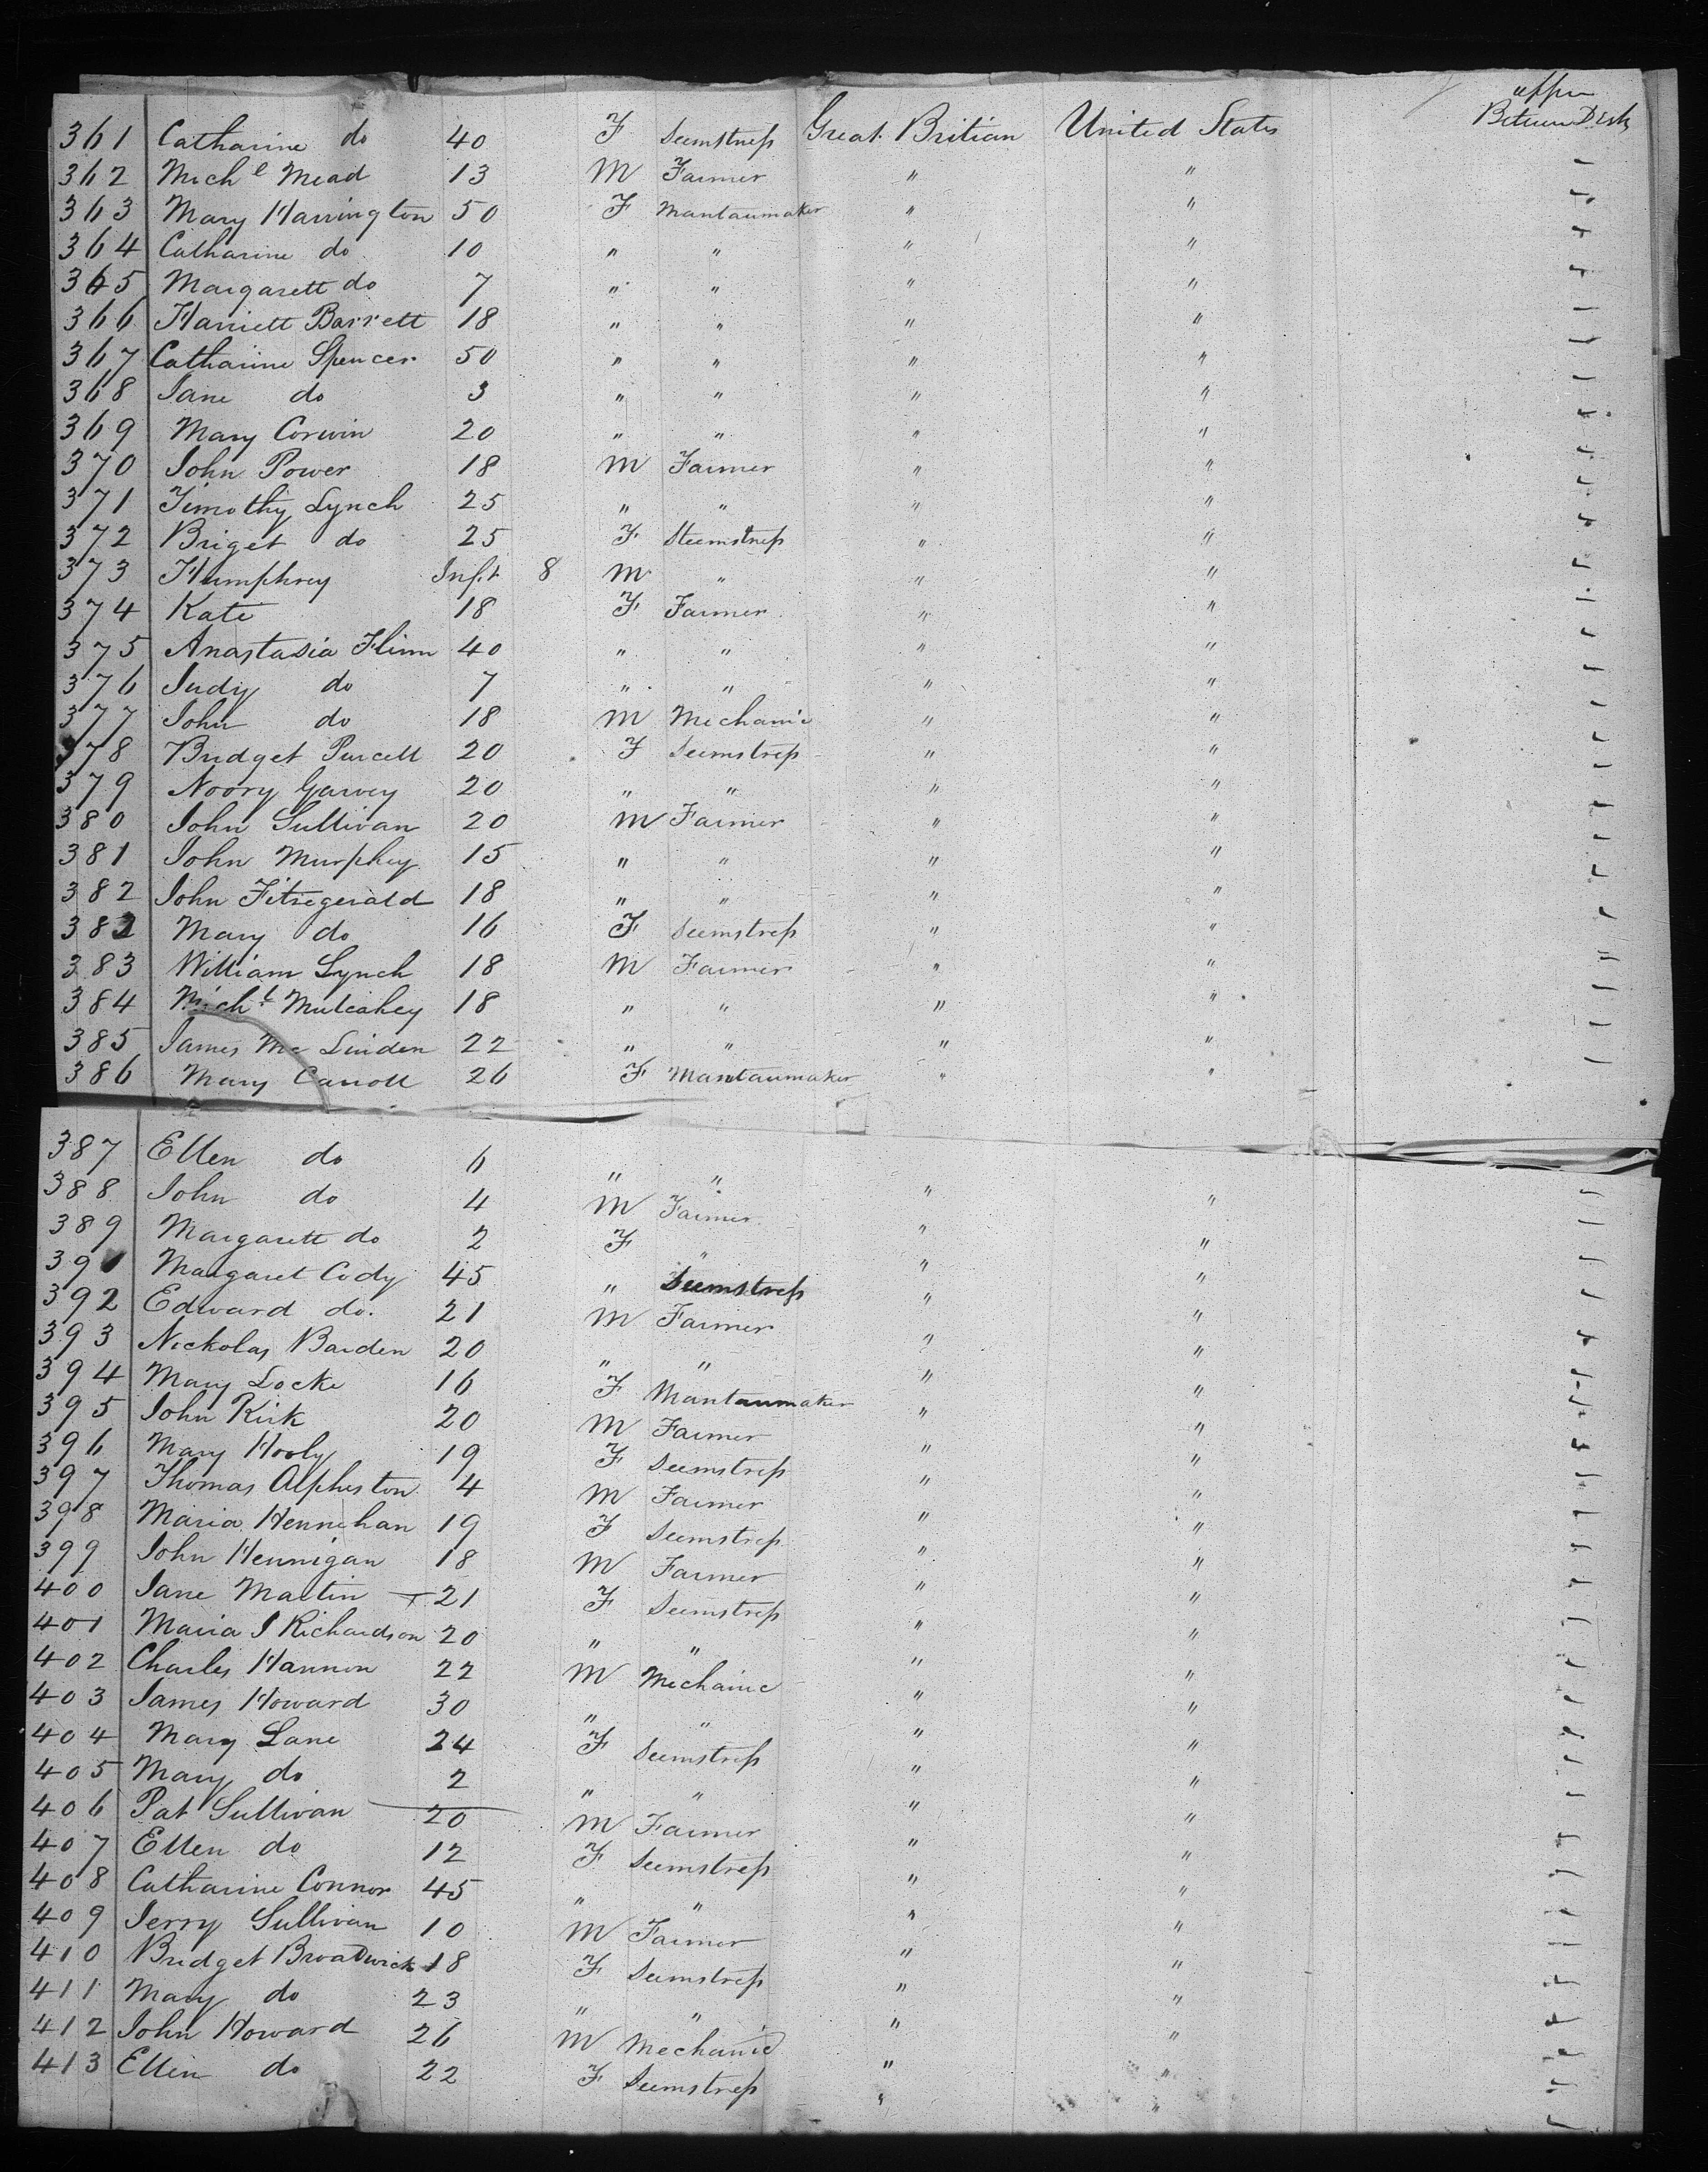 upper
361 Catharine do 40 F Seemstress Great Britian United States Between Deck
362 Mich l Mead 13 M Farmer " "
363 Mary Harrington 50 F Mantaumaker " "
364 Catharine do 10 " " " "
365 Margarett do 7 " " " "
366 Harriett Barrett 18 " " " "
367 Catharine Spencer 50 " " " "
368 Jane do 3 " " " "
369 Mary Corwin 20 " " " "
370 John Power 18 M Farmer " "
371 Timothy Lynch 25 " " " "
372 Briget do 25 F Steemstress " "
373 Humphrey Inft 8 M " " "
374 Kate 18 F Farmer " "
375 Anastasia Flinn 40 " " " "
376 Judy do 7 " " " "
377 John do 18 M Mechanic " "
378 Bridget Purcell 20 F Seemstress " "
379 Noory Garvey 20 " " " "
380 John Sullivan 20 M Farmer " "
381 John Murphey 15 " " " "
382 John Fitzegerald 18 " " " "
382 Mary do 16 F Seemstress " "
383 William Lynch 18 M Farmer " "
384 Mich l Mulcahey 18 " " " "
385 James Mc Linden 22 " " " "
386 Mary Carroll 26 F Mantaumaker " "
387 Ellen do 6 " " " "
388 John do 4 M Farmer " "
389 Margarett do 2 F " " "
391 Margaret Cody 45 " Seemstress " "
392 Edward do. 21 M Farmer " "
393 Nickolas Barden 20 " " " "
394 Mary Locke 16 F Mantaumaker " "
395 John Kirk 20 M Farmer " "
396 Mary Hooly 19 F Seemstress " "
397 Thomas Alpheston 4 M Farmer " "
398 Maria Hennehan 19 F Seemstress " "
399 John Hennigan 18 M Farmer " "
400 Jane Martin 21 F Seemstress " "
401 Maria J Richardson 20 " " " "
402 Charles Hannon 22 M Mechanic " "
403 James Howard 30 " " " "
404 Mary Lane 24 F Seemstress " "
405 Mary do 2 " " " "
406 Pat Sullivan 20 M Farmer " "
407 Ellen do 12 F Seemstress " "
408 Catharine Connor 45 " " " "
409 Jerry Sullivan 10 M Farmer " "
410 Bridget Broadwick 18 F Seemstress " "
411 Mary do 23 " " " "
412 John Howard 26 M Mechanic " "
413 Ellen do 22 F Seemstress " "